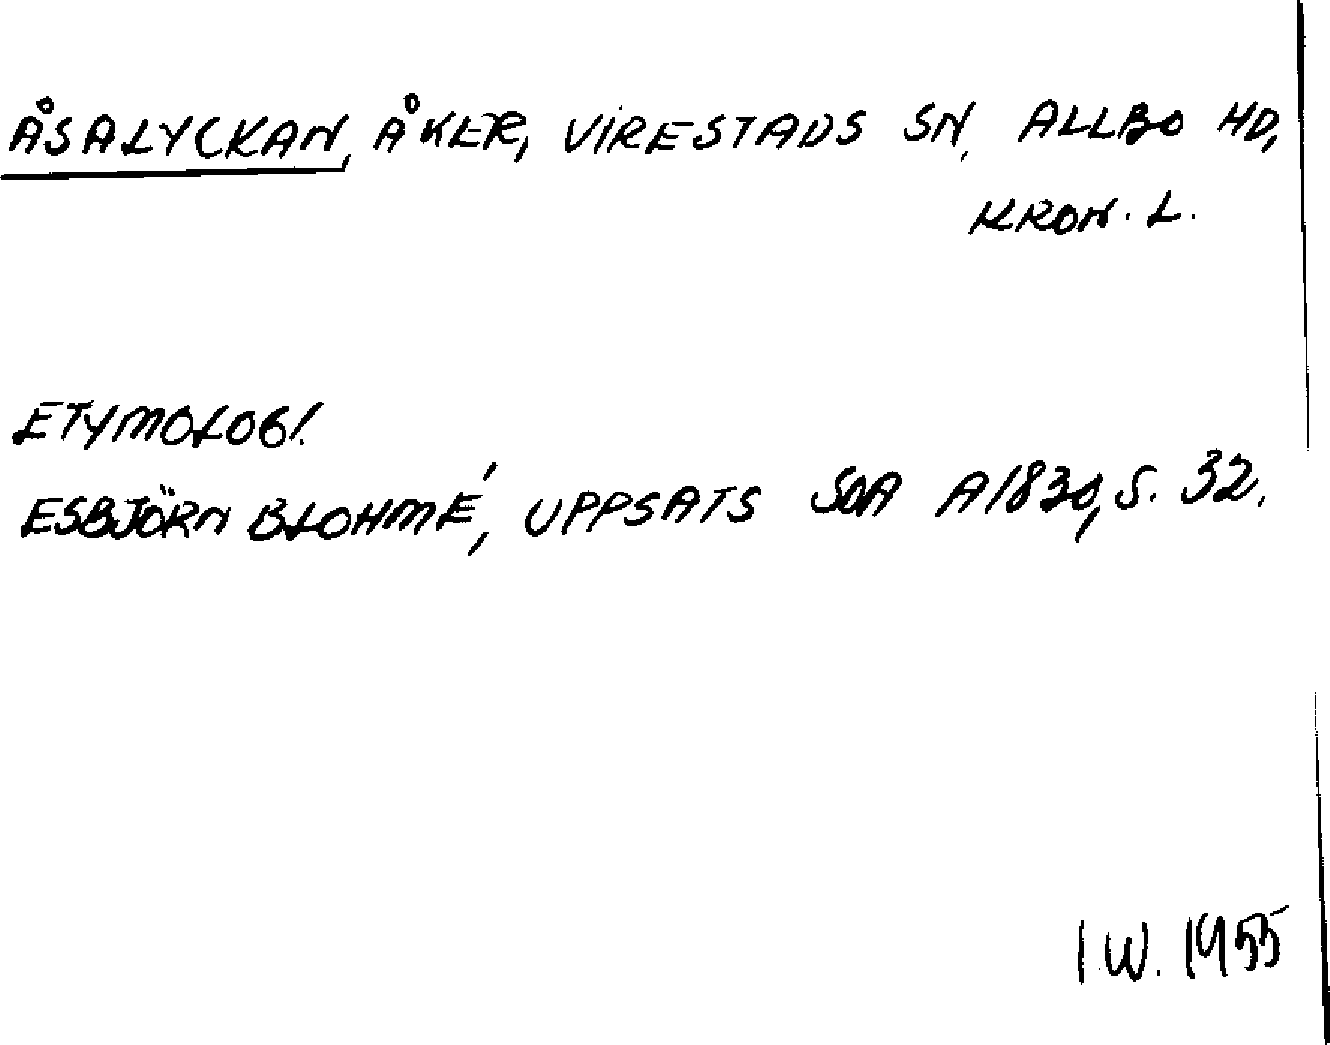 ÅSALYCKAN, ÅKER, VIRESTADS SN, ALLBO HD,
KRON. L.
ETYMOLOGI.
ESBJÖRN BLOHMÉ, UPPSATS SOA A1830, S. 32.
I.W. 1955